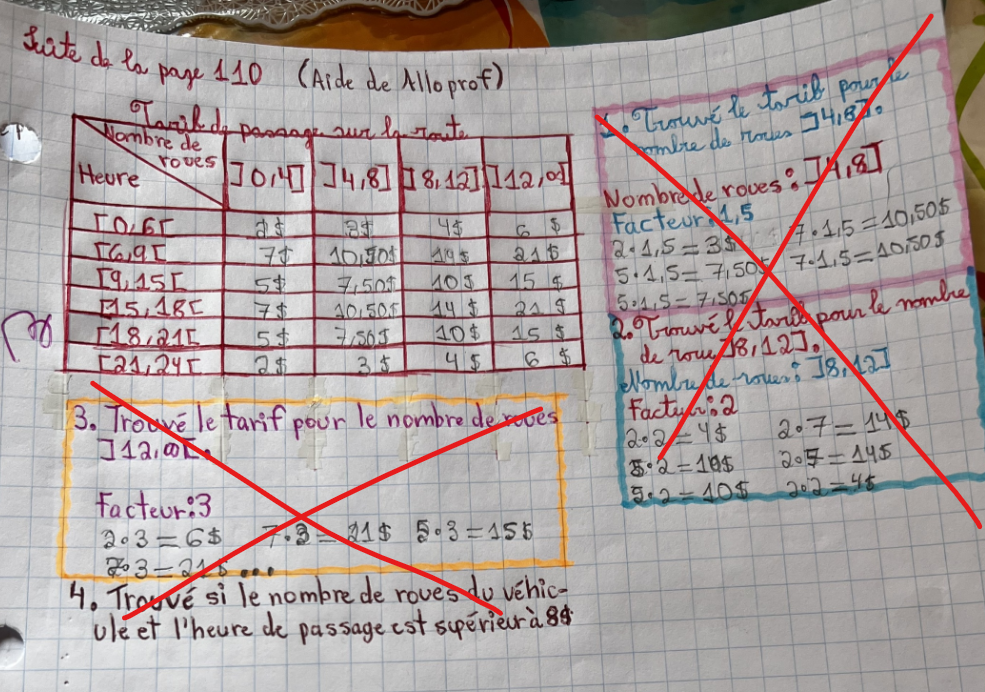 Suite de la page 110 (Aide de Alloprof)
Tarif de passage sur la route
Nombre de roues
Heure ]0,4] ]4,8] ]8,12] ]12,∞[
[0,6[ 2$ 3$ 4$ 6$
[6,9[ 7$ 10,50$ 14$ 21$
[9,15[ 5$ 7,50$ 10$ 15$
[15,18[ 7$ 10,50$ 14$ 21$
[18,21[ 5$ 7,50$ 10$ 15$
[21,24[ 2$ 3$ 4$ 6$
1. Trouvé le tarif pour le
nombre de roues ]4,8].
Nombre de roues: ]4,8]
Facteur: 1,5
2•1,5=3$ 7•1,5=10,50$
5•1,5=7,50$ 7•1,5=10,50$
5•1,5=7,50$
2. Trouvé le tarif pour le nombre
de roue ]8,12].
Nombre de roues: ]8,12]
Facteur: 2
2•2=4$ 2•7=14$
5•2=10$ 2•7=14$
5•2=10$ 2•2=4$
3. Trouvé le tarif pour le nombre de roues
]12,∞[.
Facteur: 3
2•3=6$ 7•3=21$ 5•3=15$
7•3=21$ ...
4. Trouvé si le nombre de roues du véhic-
ule et l'heure de passage est supérieur à 8$